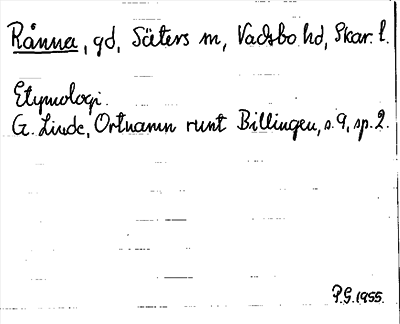 Rånna, gd, Säters sn, Vadsbo hd, Skar. l.
Etymologi.
G. Linde, Ortnamn runt Billingen, s. 9, sp. 2.
P.G. 1955.